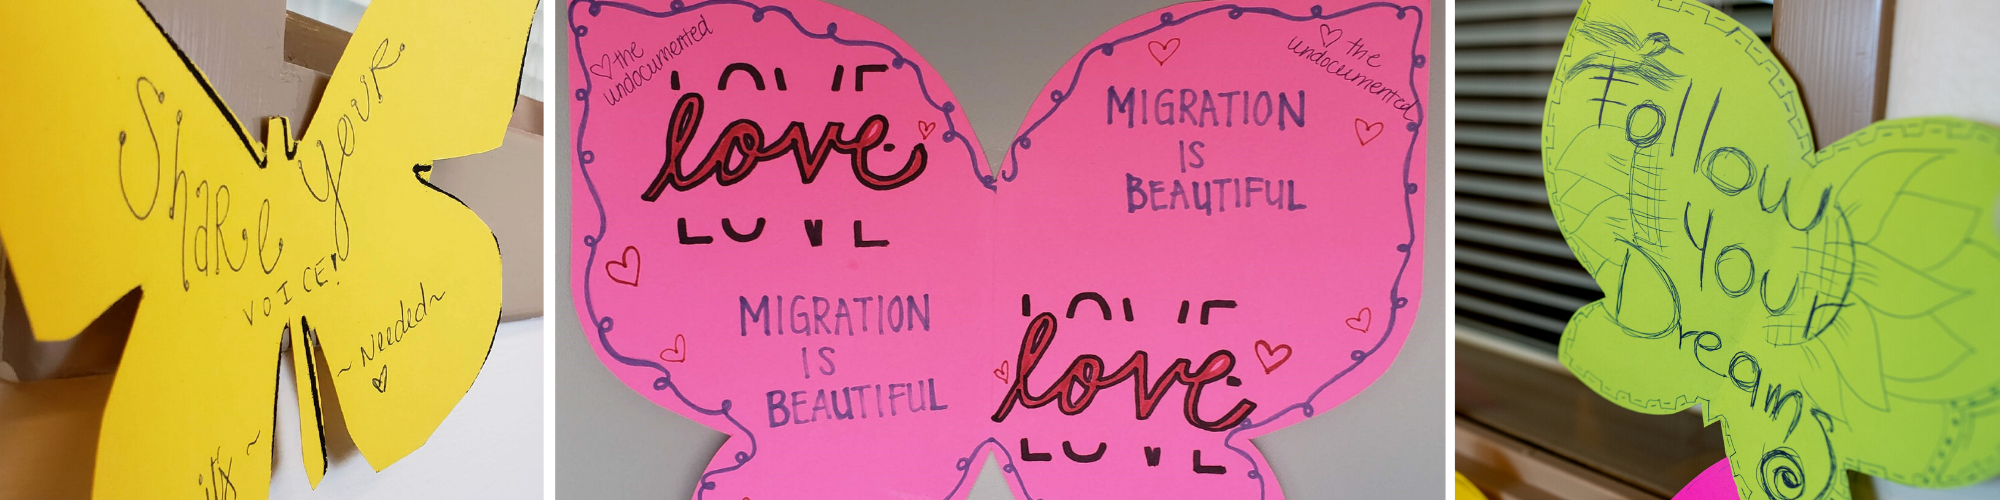 Share your
VOICE!
it's ~
~ Needed ~
♡ the
undocumented
LOVE
love
MIGRATION
IS
BEAUTIFUL
MIGRATION
IS
BEAUTIFUL
♡ the
undocumented
LOVE
love
Follow
your
Dreams